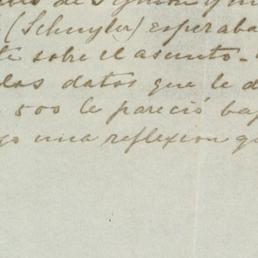 (Schuyler) esperaba
te sobre el asunto.-
los datos que le d
500 le pareció baj
go una reflexion q